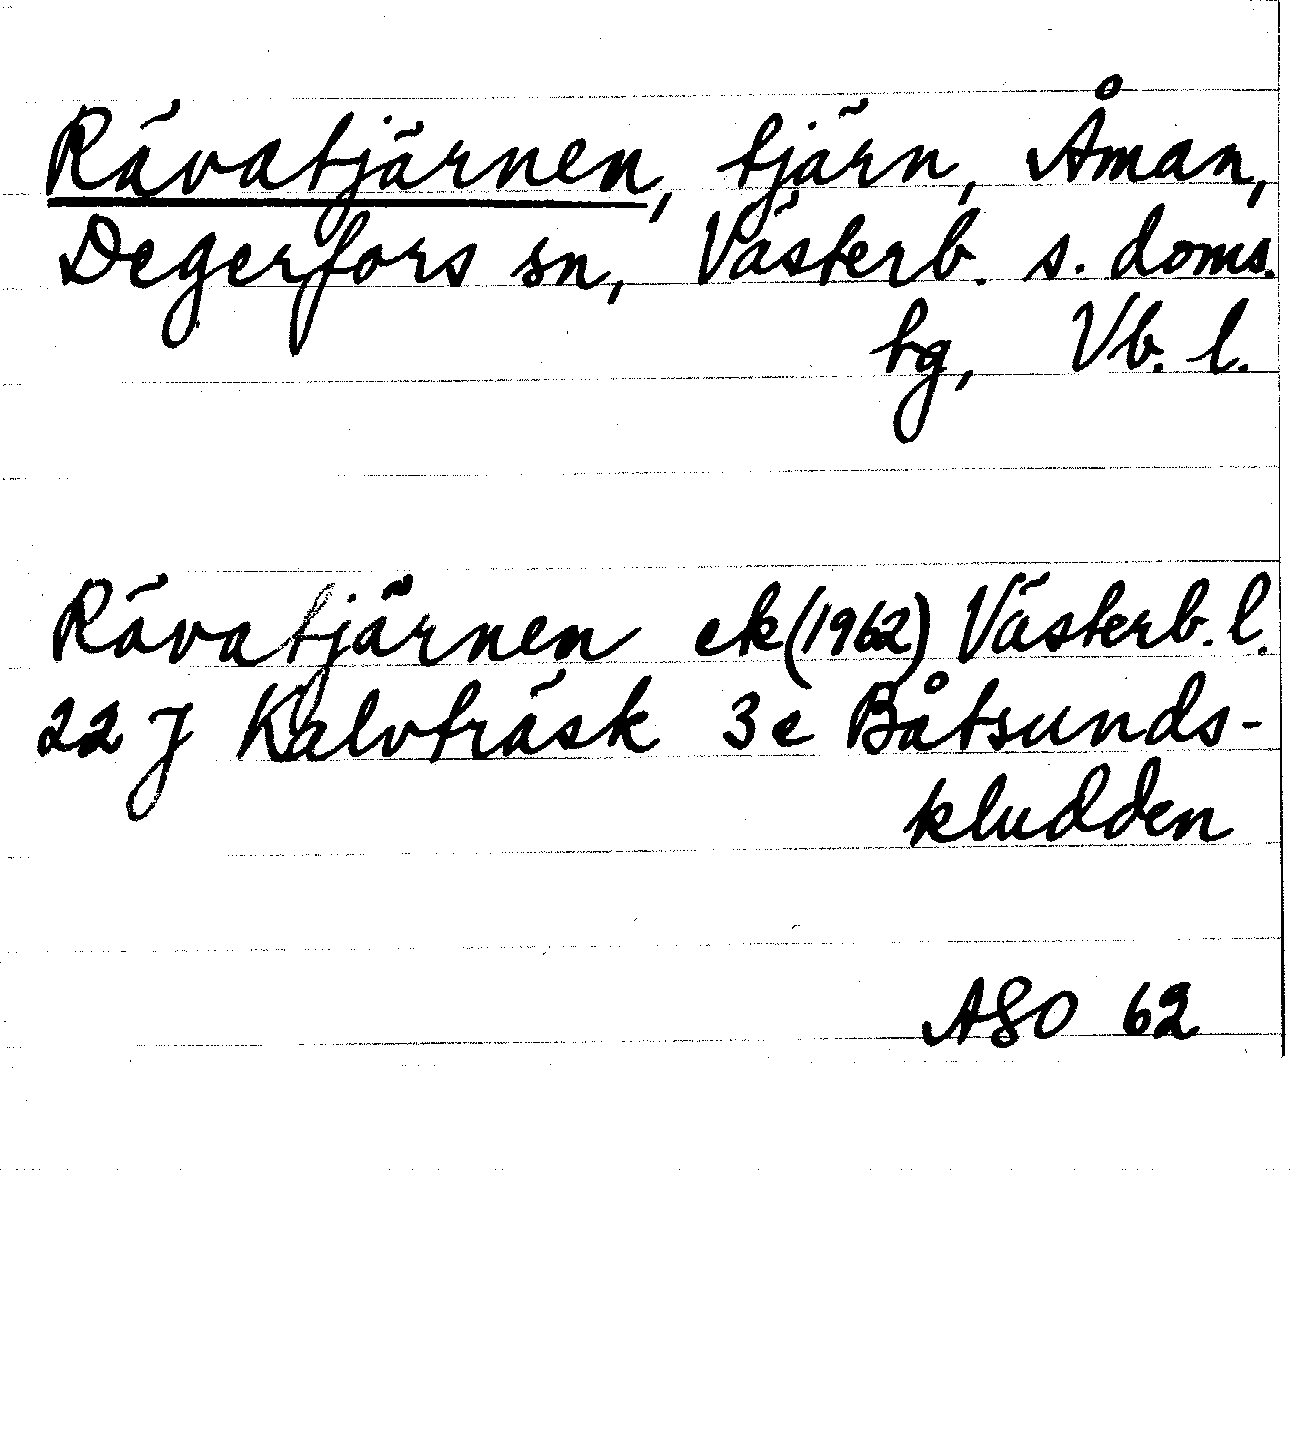 Rävatjärnen, tjärn, Åman,
Degerfors sn, Västerb. s. doms.
hg, Vb. l.
Rävatjärnen ek(1962) Västerb. l.
22 J Kalvträsk 3 e Båtsunds-
kludden
ASO 62